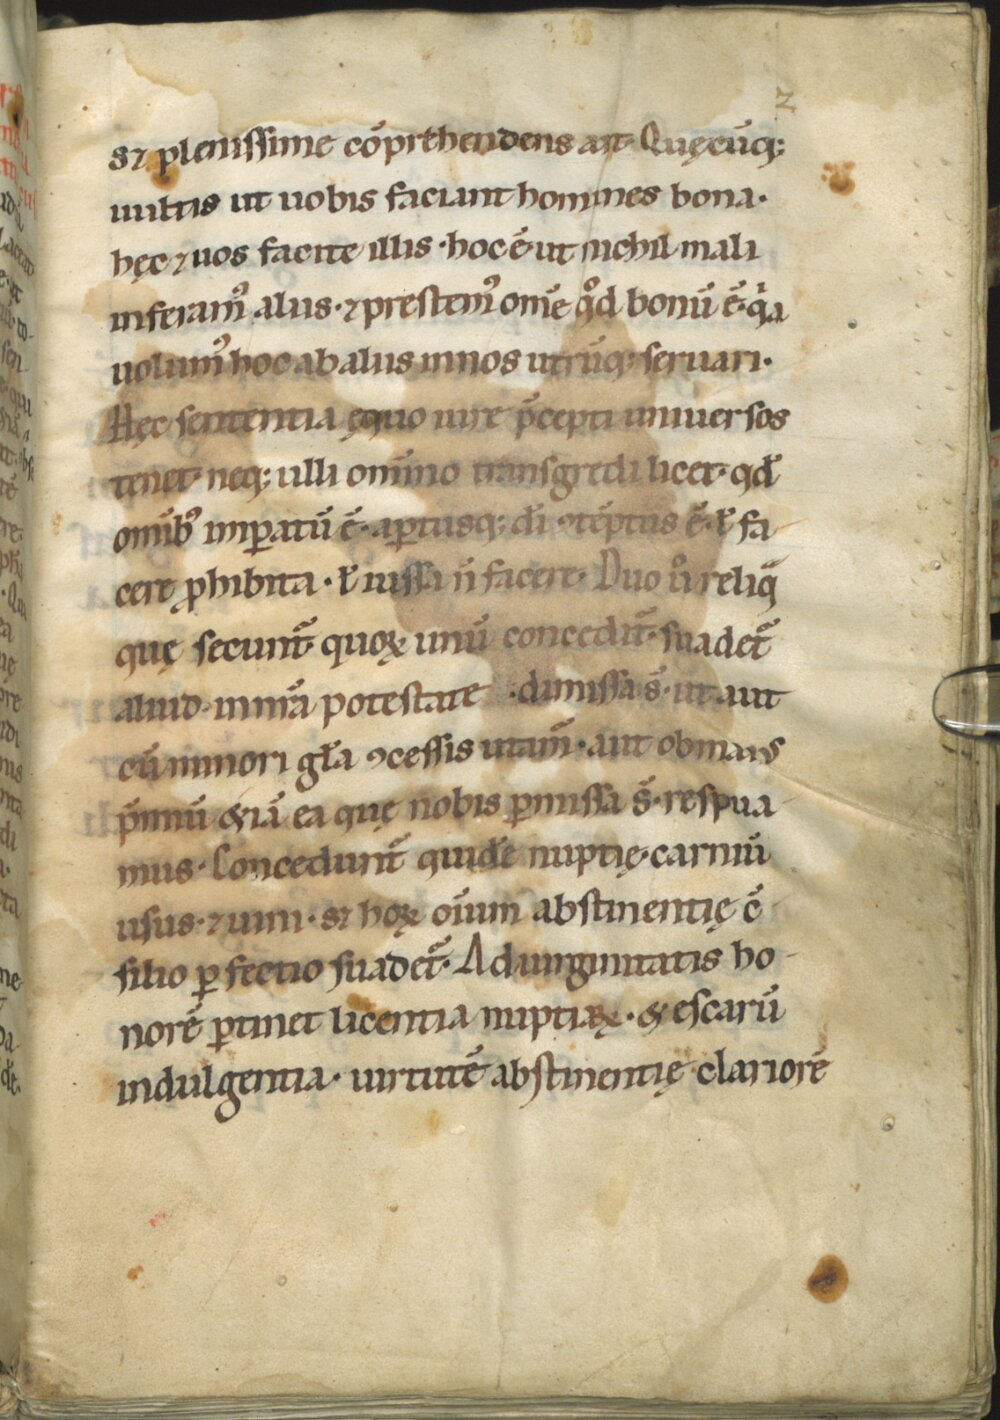 sꝫ plenissime cõprehendens ait· Quęcũq;
uultis ut uobis faciant homines bona·
hęc ⁊ uos facite illis · hoc ẽ· ut nichil mali
inferamꝰ aliis · ⁊ prestemꝰ om̃e qͦd bonũ ẽ· qͥa
uolumꝰ hoc ab aliis in nos utrũq; seruari·
Hęc sententia ęquo iure p̃cepti uniuersos
tenet· neq; ulli om̃ino transgredi licet· qđ
om̃ibꝰ imꝑatũ ẽ· aꝑtusq; di ꝯtẽptus ẽ· ł fa
cere ꝓhibita · ł iussa ñ facere· Duo ũ reliq̃
quę secunt̃ quoꝝ unũ concedit̃· suadet̃
aliud· in nr̃a potestate · dimissa s̃· ut aut
cũ minori gła ꝯcessis utam̃· aut ob maius
p̃miũ &iã ea quę nobis ꝑmissa s̃· respua
mus · Concedunt̃ quidẽ nuptię· carniũ
usus · ⁊ uini · sꝫ hoꝝ oĩum abstinentię c̃
silio ꝑfectio suadet̃· Ad uirginitatis ho-
norẽ ꝑtinet licentia nuptiaꝝ · & escarũ
indulgentia · uirtutẽ abstinentię clariorẽ